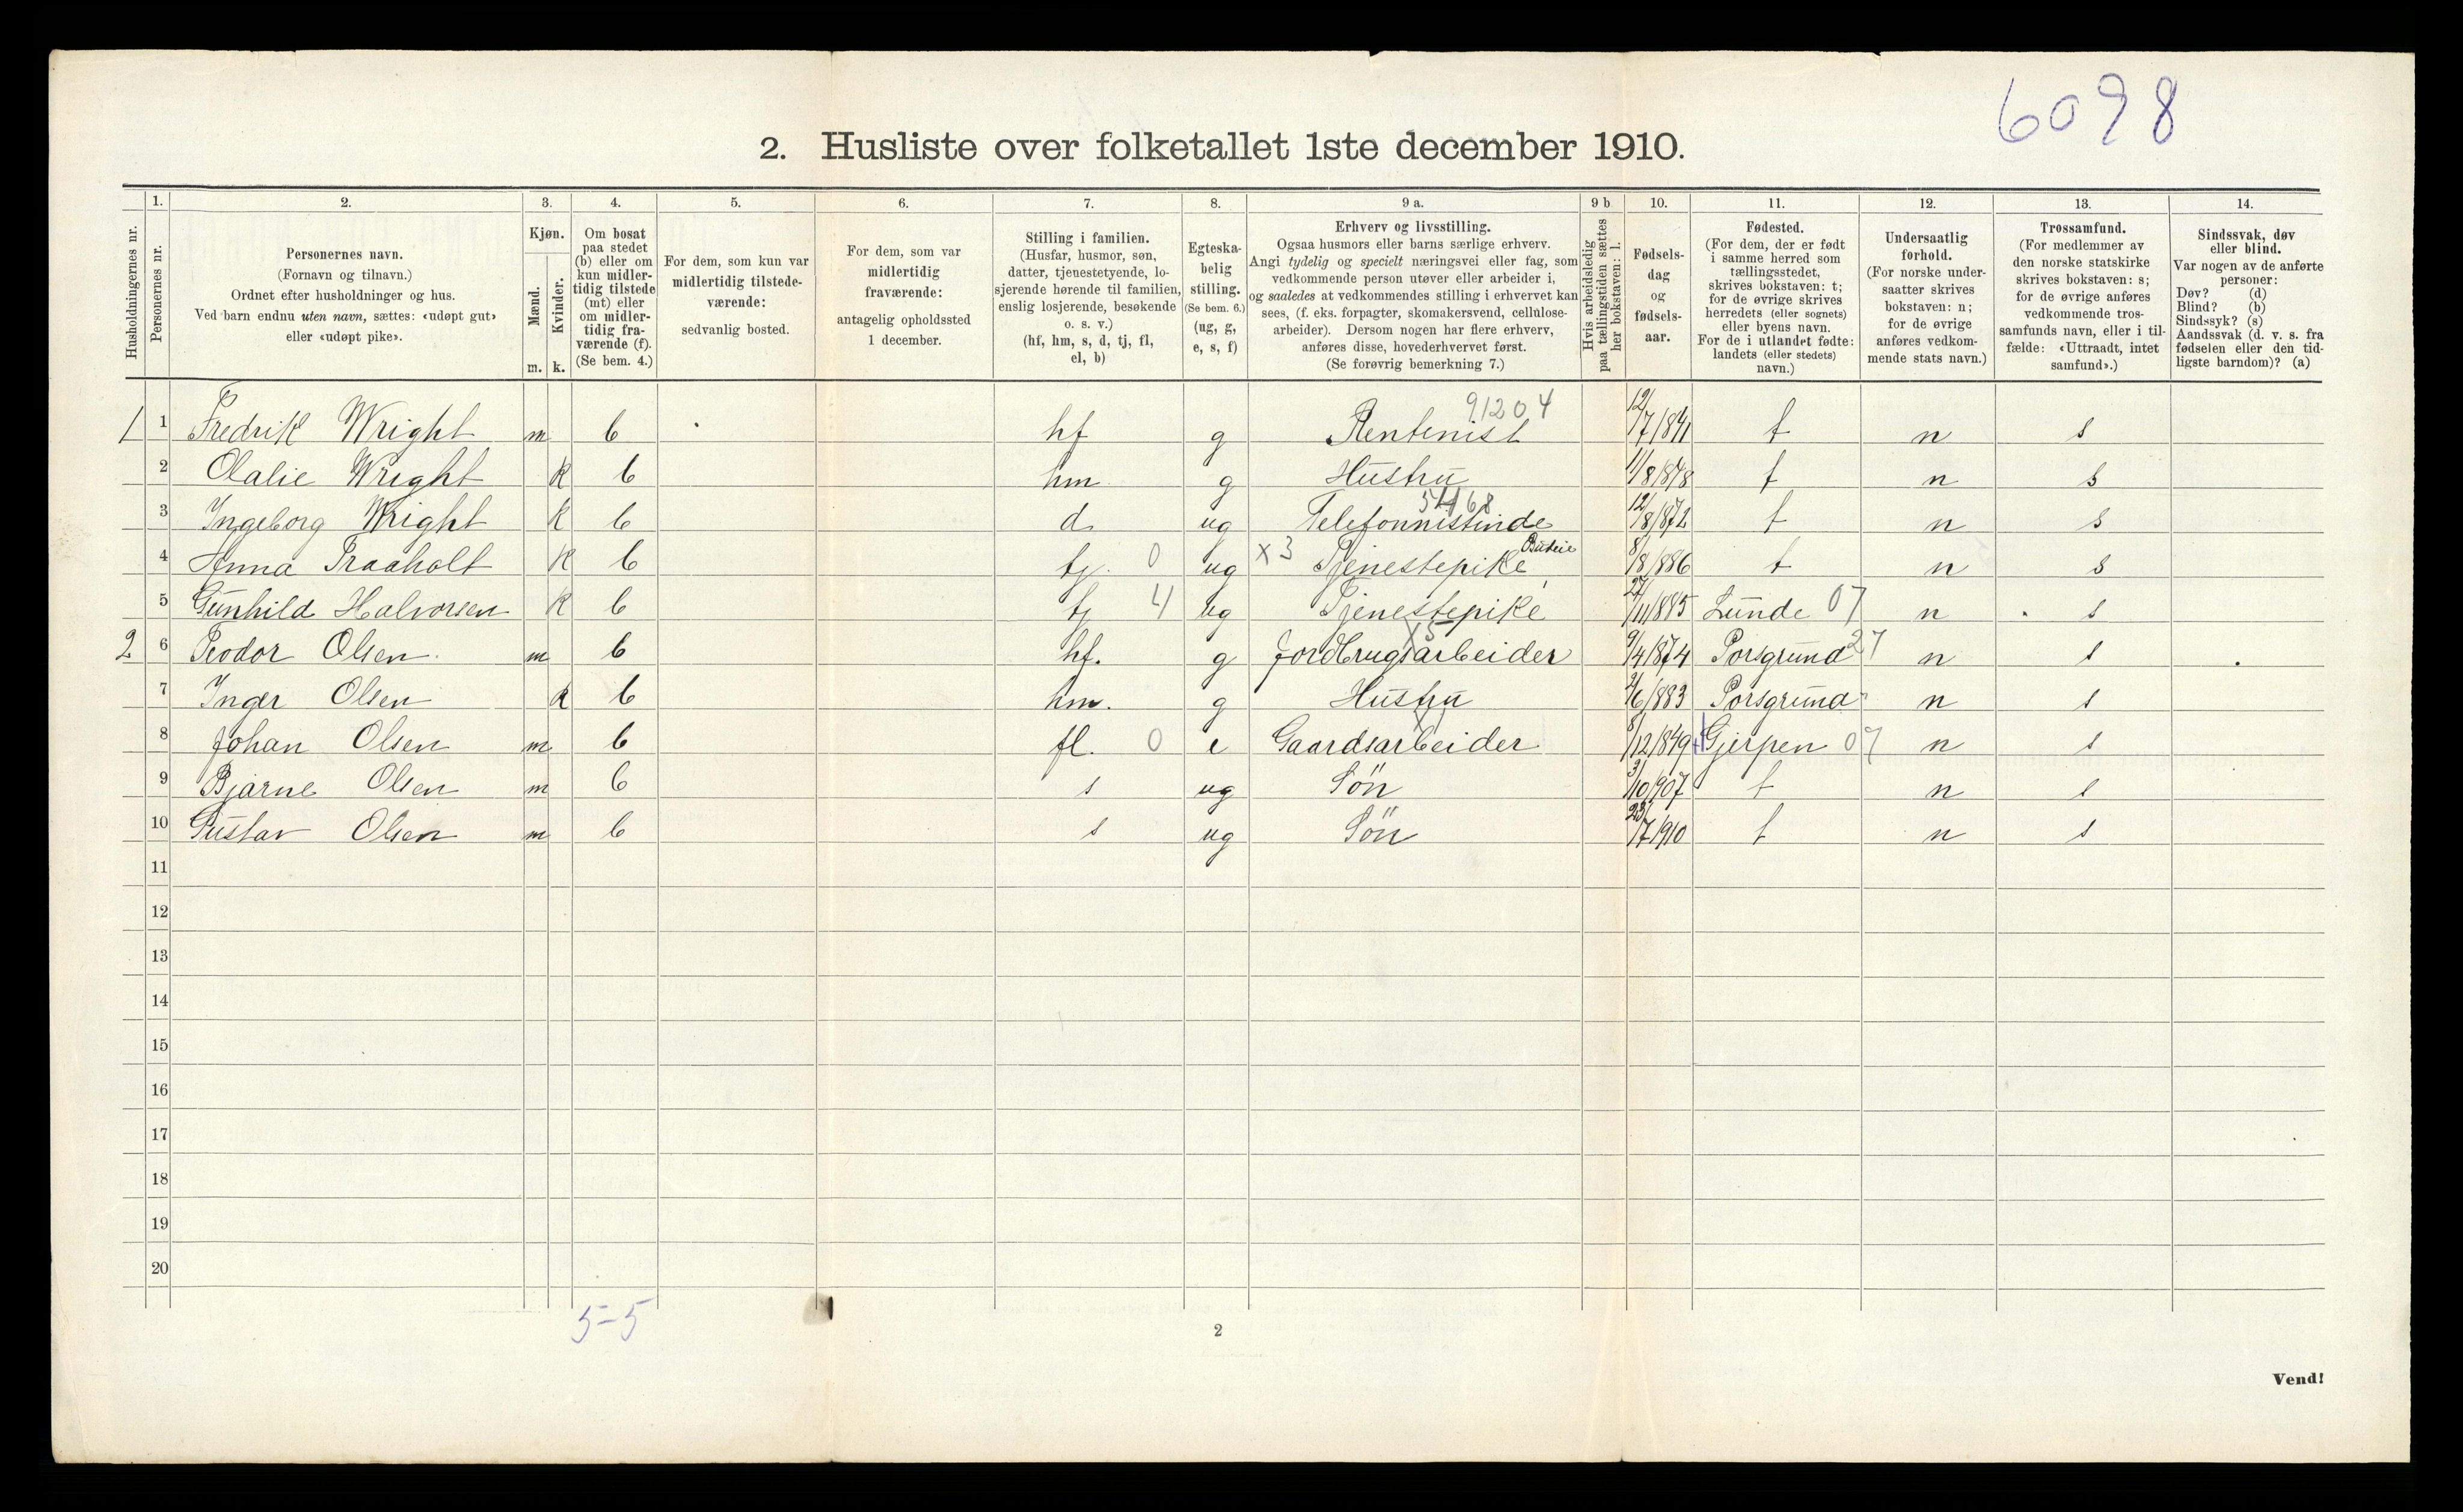 6098
2. Husliste over folketallet 1ste december 1910.
Husholdningernes nr.
1.
Personernes nr.
2.
Personernes navn.
(Fornavn og tilnavn.)
Ordnet efter husholdninger og hus.
Ved barn endnu uten navn, sættes: «udøpt gut»
eller «udøpt pike».
3.
Kjøn.
Mænd.
Kvinder.
m. k.
4.
Om bosat
paa stedet
(b) eller om
kun midler-
tidig tilstede
(mt) eller
om midler-
tidig fra-
værende (f).
(Se bem. 4.)
5.
For dem, som kun var
midlertidig tilstede-
værende:
sedvanlig bosted.
6.
For dem, som var
midlertidig
fraværende:
antagelig opholdssted
1 december.
7.
Stilling i familien.
(Husfar, husmor, søn,
datter, tjenestetyende, lo-
sjerende hørende til familien,
enslig losjerende, besøkende
o. s. v.)
(hf, hm, s, d, tj, fl,
el, b)
8.
Egteska-
belig
stilling.
(Se bem. 6.)
(ug, g,
e, s, f)
9 a.
Erhverv og livsstilling.
Ogsaa husmors eller barns særlige erhverv.
Angi tydelig og specielt næringsvei eller fag, som
vedkommende person utøver eller arbeider i,
og saaledes at vedkommendes stilling i erhvervet kan
sees, (f. eks. forpagter, skomakersvend, cellulose-
arbeider). Dersom nogen har flere erhverv,
anføres disse, hovederhvervet først.
(Se forøvrig bemerkning 7.)
9 b
Hvis arbeidsledig
paa tællingstiden sættes
her bokstaven: l.
10.
Fødsels-
dag
og
fødsels-
aar.
11.
Fødested.
(For dem, der er født
i samme herred som
tællingsstedet,
skrives bokstaven: t;
for de øvrige skrives
herredets (eller sognets)
eller byens navn.
For de i utlandet fødte:
landets (eller stedets)
navn.)
12.
Undersaatlig
forhold.
(For norske under-
saatter skrives
bokstaven: n;
for de øvrige
anføres vedkom-
mende stats navn.)
13.
Trossamfund.
(For medlemmer av
den norske statskirke
skrives bokstaven: s;
for de øvrige anføres
vedkommende tros-
samfunds navn, eller i til-
fælde: «Uttraadt, intet
samfund».)
14.
Sindssvak, døv
eller blind.
Var nogen av de anførte
personer:
Døv? (d)
Blind? (b)
Sindssyk? (s)
Aandssvak (d. v. s. fra
fødselen eller den tid-
ligste barndom)? (a)
91204
1 1 Fredrik Wright m b hf g Rentenist 12/7/841 t n s
2 Olalie Wright k b hm g Hustru 11/8/848 t n s
3 Ingeborg Wright k b d. ug Telefonnistinde 12/8/872 t n s
4 Anna Traaholt k b tj. 0 ug x3 Tjenestepike Budeie 8/8/886 t n s
5 Gunhild Halvorsen k b tj 4 ug Tjenestepike 27/11/895 Lunde 07 n s
2 6 Teodor Olsen m b hf. g Jordbrugsarbeider 9/4/874 Porsgrund 27 n s
7 Inger Olsen k b hm. g Hustru /6/883 Porsgrund n s
8 Johan Olsen m b fl. 0 e Gaardsarbeider 8/12/849 Gjerpen 07 n s
9 Bjarne Olsen m b s ug Søn 3/10/907 t n s
10 Gustav Olsen m b s ug Søn 23/7/910 t n s
11
12
13
14
15
16
17
18
19
20
5-5
2
Vend!